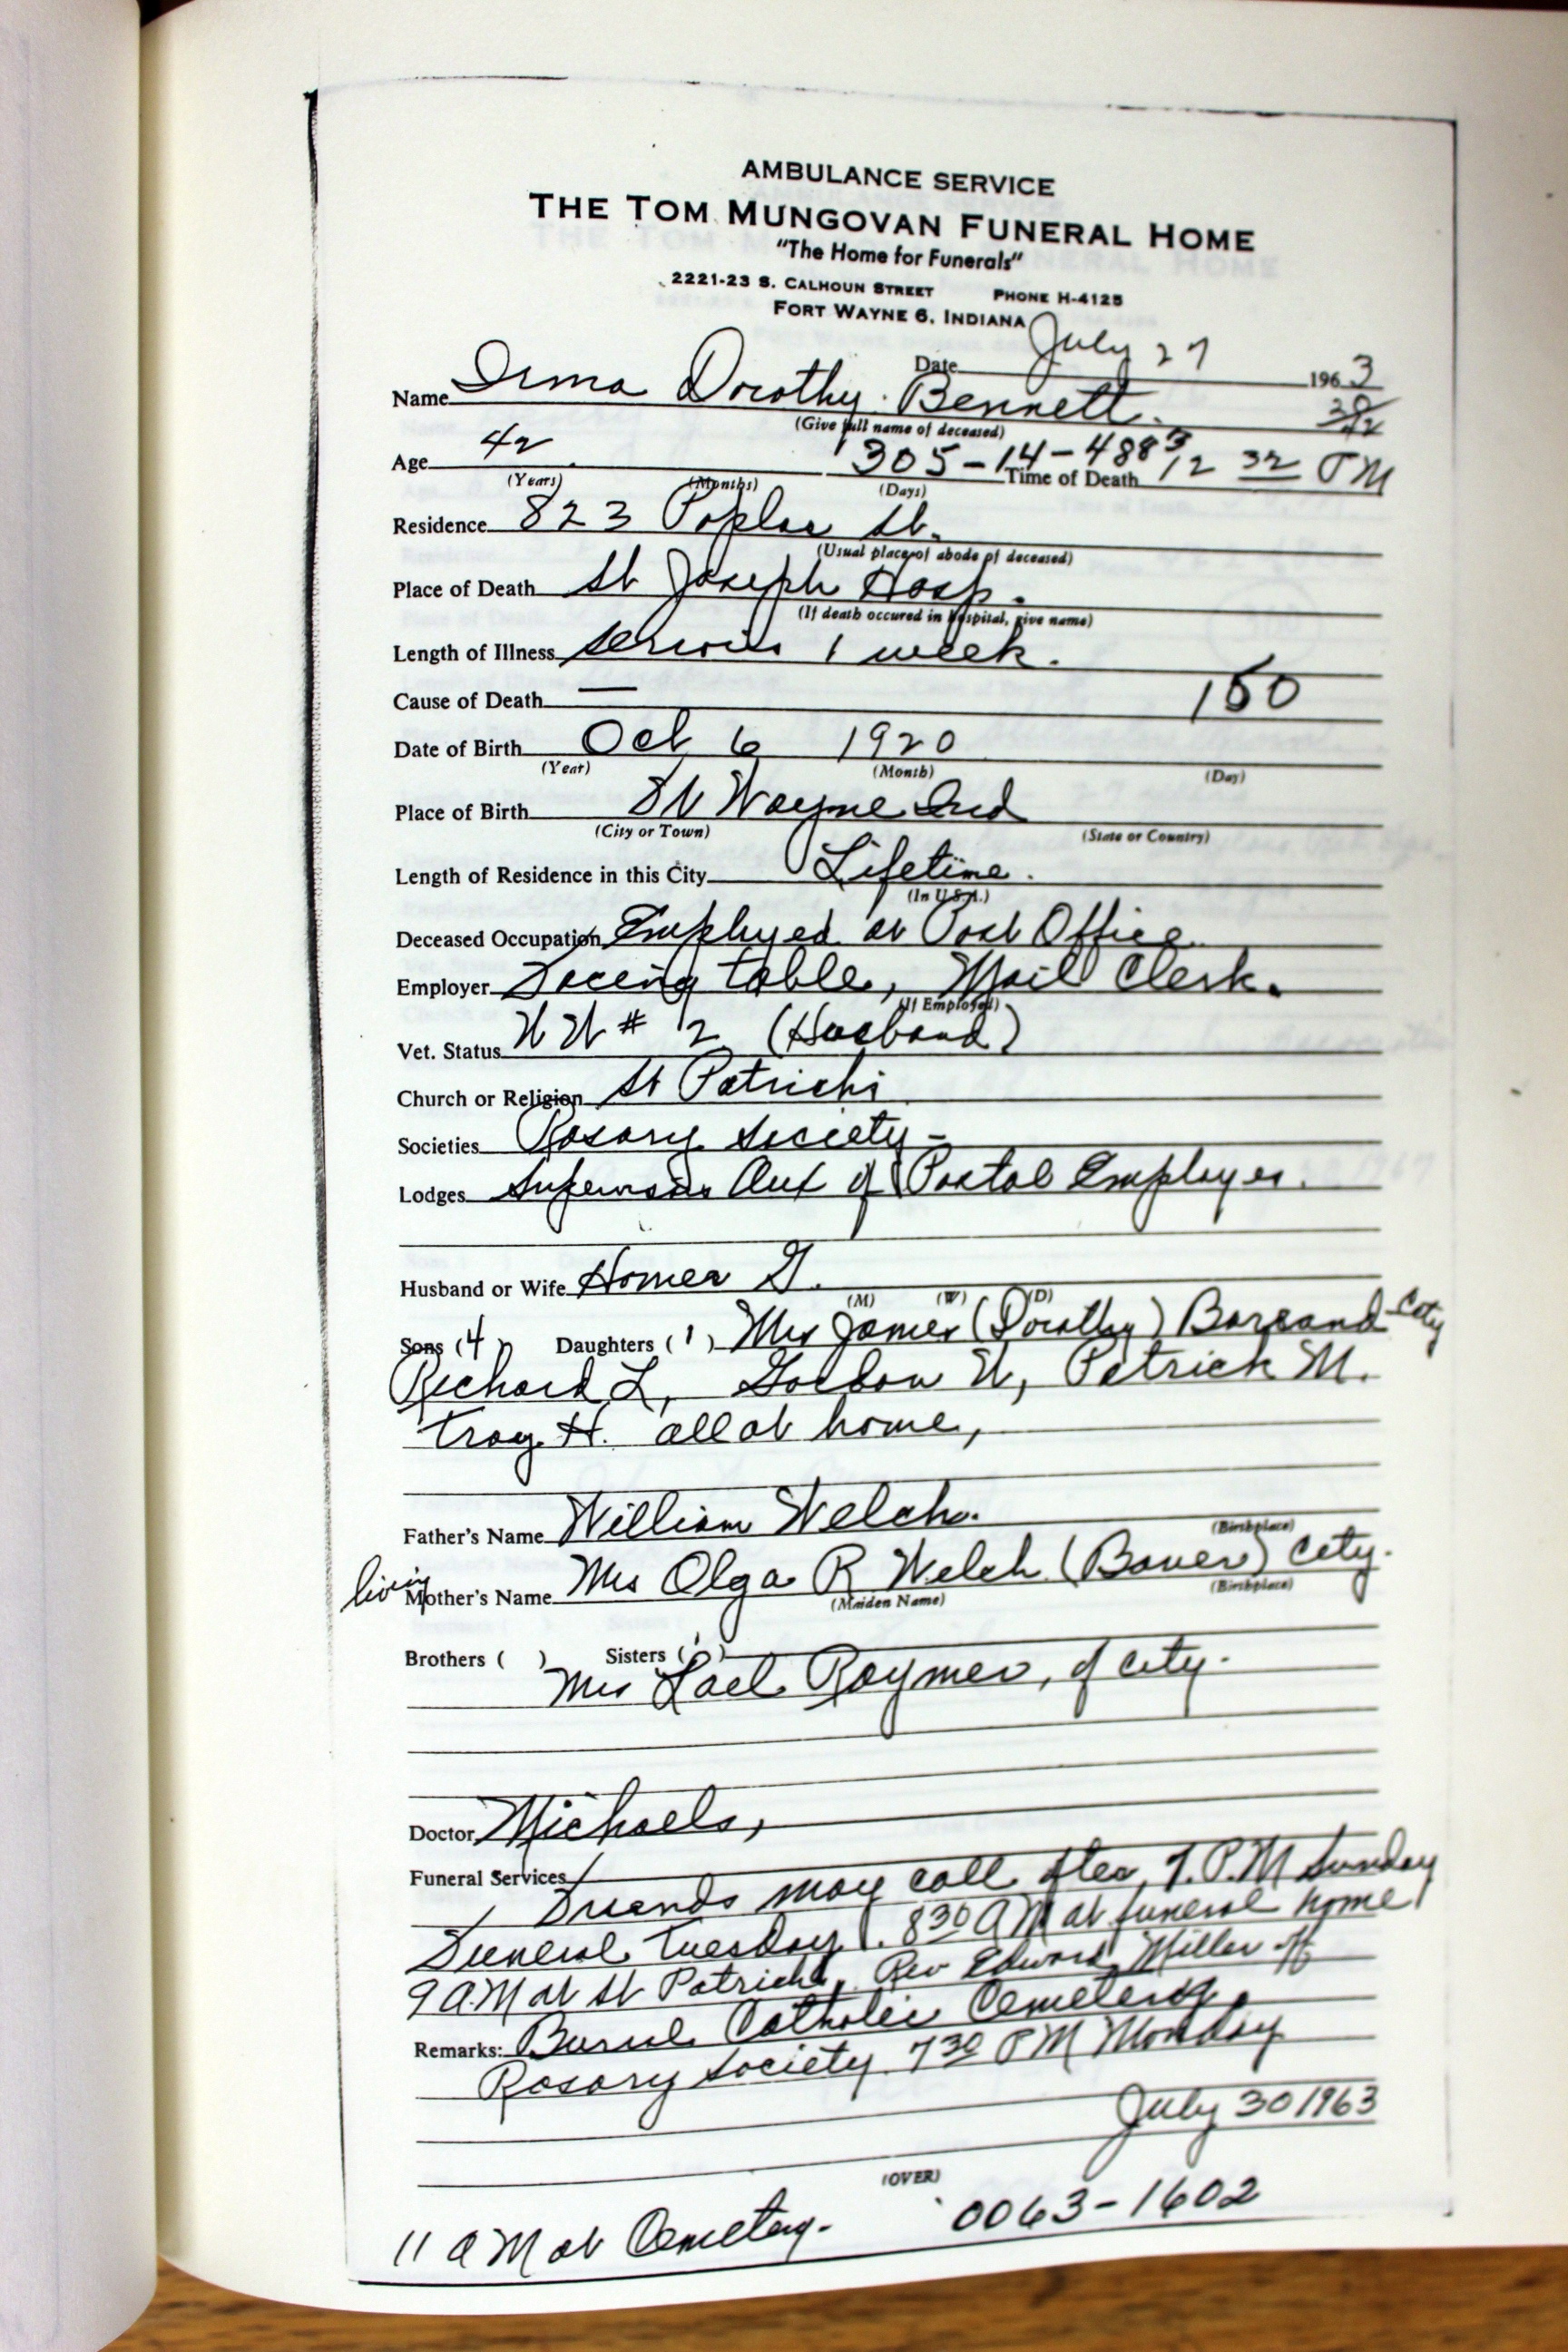 AMBULANCE SERVICE
THE TOM MUNGOVAN FUNERAL HOME
"The Home for Funerals"
2221-23 S. CALHOUN STREET PHONE H-4125
FORT WAYNE 6, INDIANA
Date July 27 1963
Name Irma Dorothy Bennett.
(Give full name of deceased)
Age 42 305-14-4883 Time of Death 12 32 PM
(Years) (Months) (Days)
Residence 823 Poplar St.
(Usual place of abode of deceased)
Place of Death St Joseph Hosp.
(If death occured in hospital, give name)
Length of Illness serious 1 week.
Cause of Death — 150
Date of Birth Oct 6 1920
(Year) (Month) (Day)
Place of Birth Ft Wayne Ind
(City or Town) (State or Country)
Length of Residence in this City Lifetime.
(In U.S.A.)
Deceased Occupation Employed at Post Office
Employer Faceing table, Mail Clerk.
(If Employed)
Vet. Status WW # 2 (Husband)
Church or Religion St Patricks
Societies Rosary Society -
Lodges Aux of Postal Employes.
Husband or Wife Homer G.
(M) (W) (D)
Sons (4) Daughters (1) Mrs James (Dorothy) City
Richard L, Gordon W, Patrick M.
Troy H. all at home,
Father's Name William Welch.
(Birthplace)
living Mother's Name Mrs Olga R Welch (Bauer) City.
(Maiden Name) (Birthplace)
Brothers ( ) Sisters (1)
Mrs Lael Raymer, of city.
Doctor Michaels,
Funeral Services
Friends may call after 7. P.M Sunday
Funeral Tuesday. 830 AM at funeral home
9 AM at St Patricks, Rev Edward Miller off
Remarks: Burial Catholic Cemetery.
Rosary Society 730 PM Monday
July 30 1963
(OVER)
11 AM at Cemetery. 0063-1602